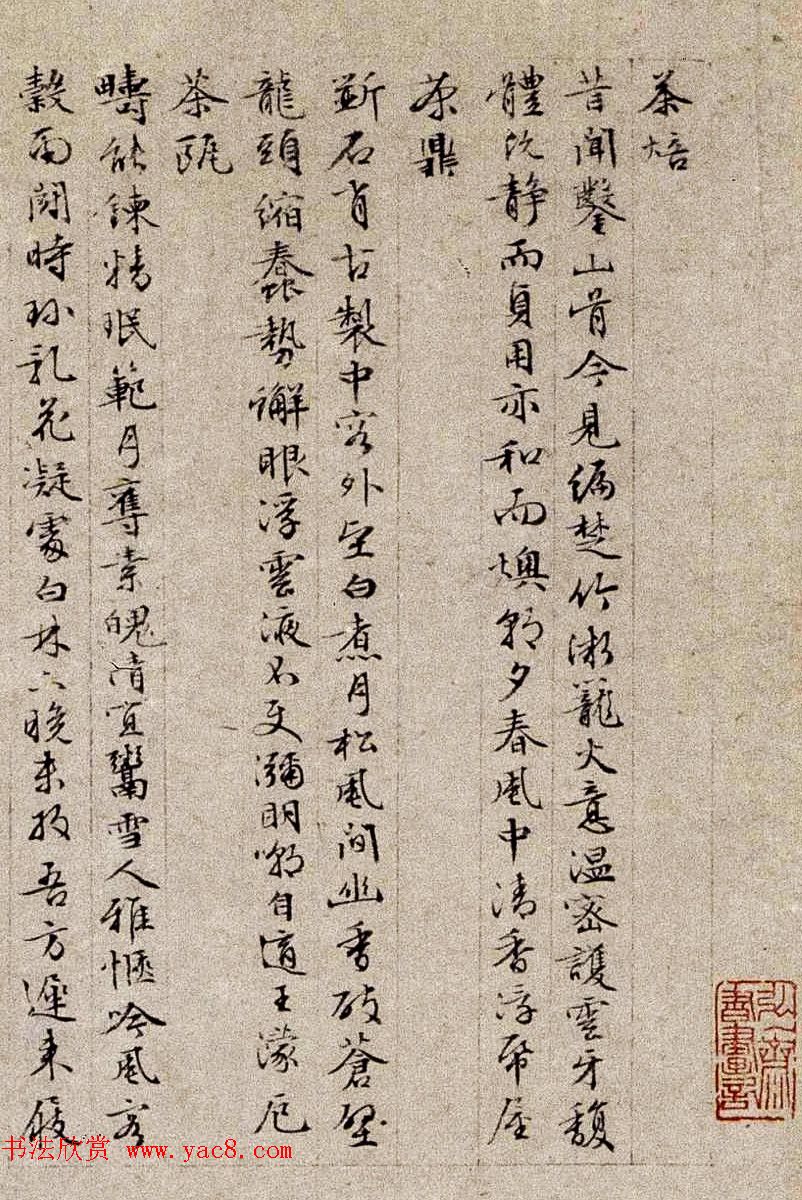 茶焙
昔聞鑿山骨今見編楚竹微籠火意温密護雲牙馥
體既静而貞用亦和而燠朝夕春風中清香浮帋屋
茶鼎
斲石肖古製中容外堅白煮月松風間幽香破蒼壁
龍頭縮蠢勢蟹眼浮雲液不使彌明嘲自適王濛厄
茶甌
疇能鍊精珉範月奪素魄清宜鬻雪人雅愜吟風客
穀雨鬪時珍乳花凝處白林下晚未收吾方遲來屐
書法欣赏 www.yac8.com